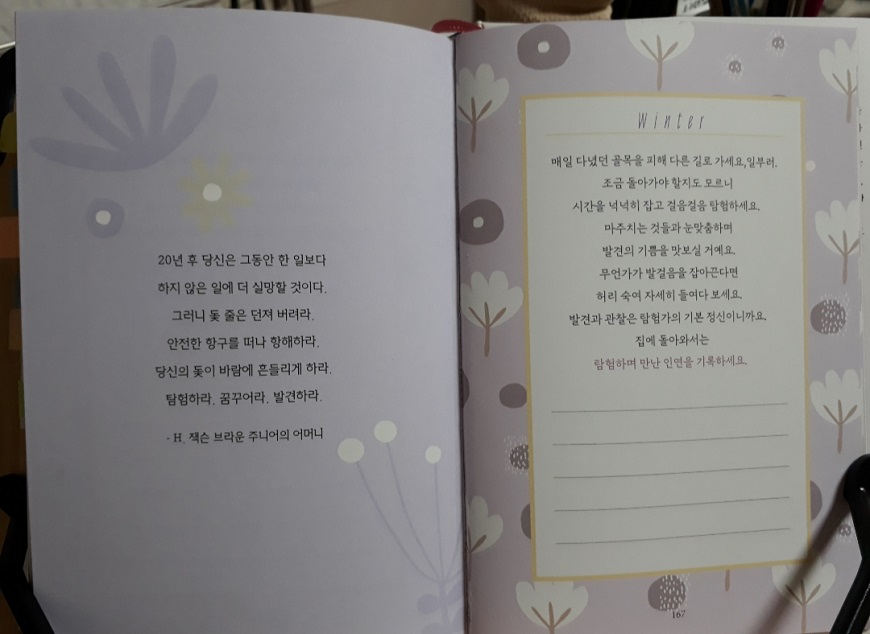 20년 후 당신은 그동안 한 일보다
하지 않은 일에 더 실망할 것이다.
그러니 돛 줄은 던져 버려라.
안전한 항구를 떠나 항해하라.
당신의 돛이 바람에 흔들리게 하라.
탐험하라, 꿈꾸어라, 발견하라.
- H. 잭슨 브라운 주니어의 어머니
Winter
매일 다녔던 골목을 피해 다른 길로 가세요,일부러.
조금 돌아가야 할지도 모르니
시간을 넉넉히 잡고 걸음걸음 탐험하세요.
마주치는 것들과 눈맞춤하며
발견의 기쁨을 맛보실 거예요.
무언가가 발걸음을 잡아끈다면
허리 숙여 자세히 들여다 보세요.
발견과 관찰은 탐험가의 기본 정신이니까요.
집에 돌아와서는
탐험하며 만난 인연을 기록하세요.
167